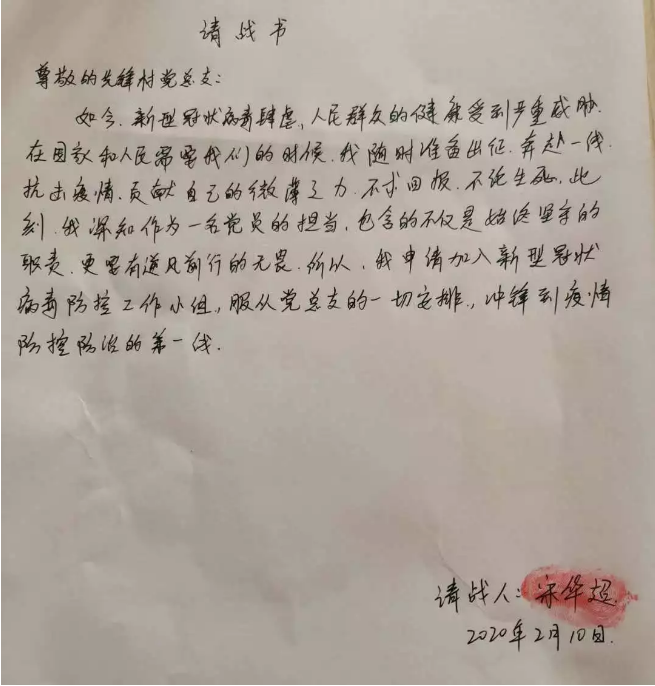 请战书
尊敬的先锋村党总支：
如今，新型冠状病毒肆虐，人民群众的健康受到严重威胁，
在国家和人民需要我们的时候，我随时准备出征，奔赴一线，
抗击疫情，贡献自己的微薄之力，不求回报，不论生死，此
刻，我深知作为一名党员的担当，包含的不仅是始终坚守的
职责，更要有逆风前行的无畏，所以，我申请加入新型冠状
病毒防控工作小组，服从党总支的一切安排，冲锋到疫情
防控防治的第一线.
请战人：宋华超
2020年2月10日.